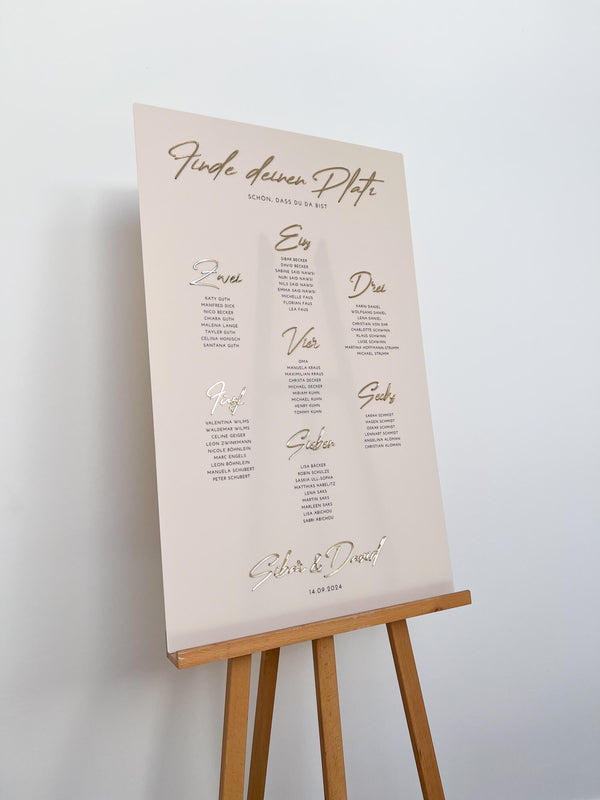 Finde deinen Platz
SCHÖN, DASS DU DA BIST
Eins
SIBAR BECKER
DAVID BECKER
SABINE SAID NAWSI
NURI SAID NAWSI
NILS SAID NAWSI
EMMA SAID NAWSI
MICHELLE FAUS
FLORIAN FAUS
LEA FAUS
Zwei
KATY GUTH
MANFRED DICK
NICO BECKER
CHIARA GUTH
MALENA LANGE
TAYLER GUTH
CELINA HONISCH
SANTANA GUTH
Drei
KARIN DANIEL
WOLFGANG DANIEL
LENA DANIEL
CHRISTIAN VON EHR
CHARLOTTE SCHWINN
KLAUS SCHWINN
LUISE SCHWINN
MARTINA HOFFMANN STRUMM
MICHAEL STRUMM
Vier
OMA
MANUELA KRAUS
MAXIMILIAN KRAUS
CHRISTA DECKER
MICHAEL DECKER
MIRIAM KUHN
MICHAEL KUHN
HENRY KUHN
TOMMY KUHN
Fünf
VALENTINA WILMS
WALDEMAR WILMS
CELINE GEIGER
LEON ZWINKMANN
NICOLE BÖHNLEIN
MARC ENGELS
LEON BÖHNLEIN
MANUELA SCHUBERT
PETER SCHUBERT
Sechs
SARAH SCHMIDT
HAGEN SCHMIDT
OSKAR SCHMIDT
LENNART SCHMIDT
ANGELINA ALOMAN
CHRISTIAN ALOMAN
Sieben
LISA BÄCKER
ROBIN SCHULZE
SASKIA ULL-SOPHA
MATTHIAS NABELITZ
LENA SAKS
MARTIN SAKS
MARLEEN SAKS
LISA ABICHOU
SABRI ABICHOU
Sibar & David
14.09.2024